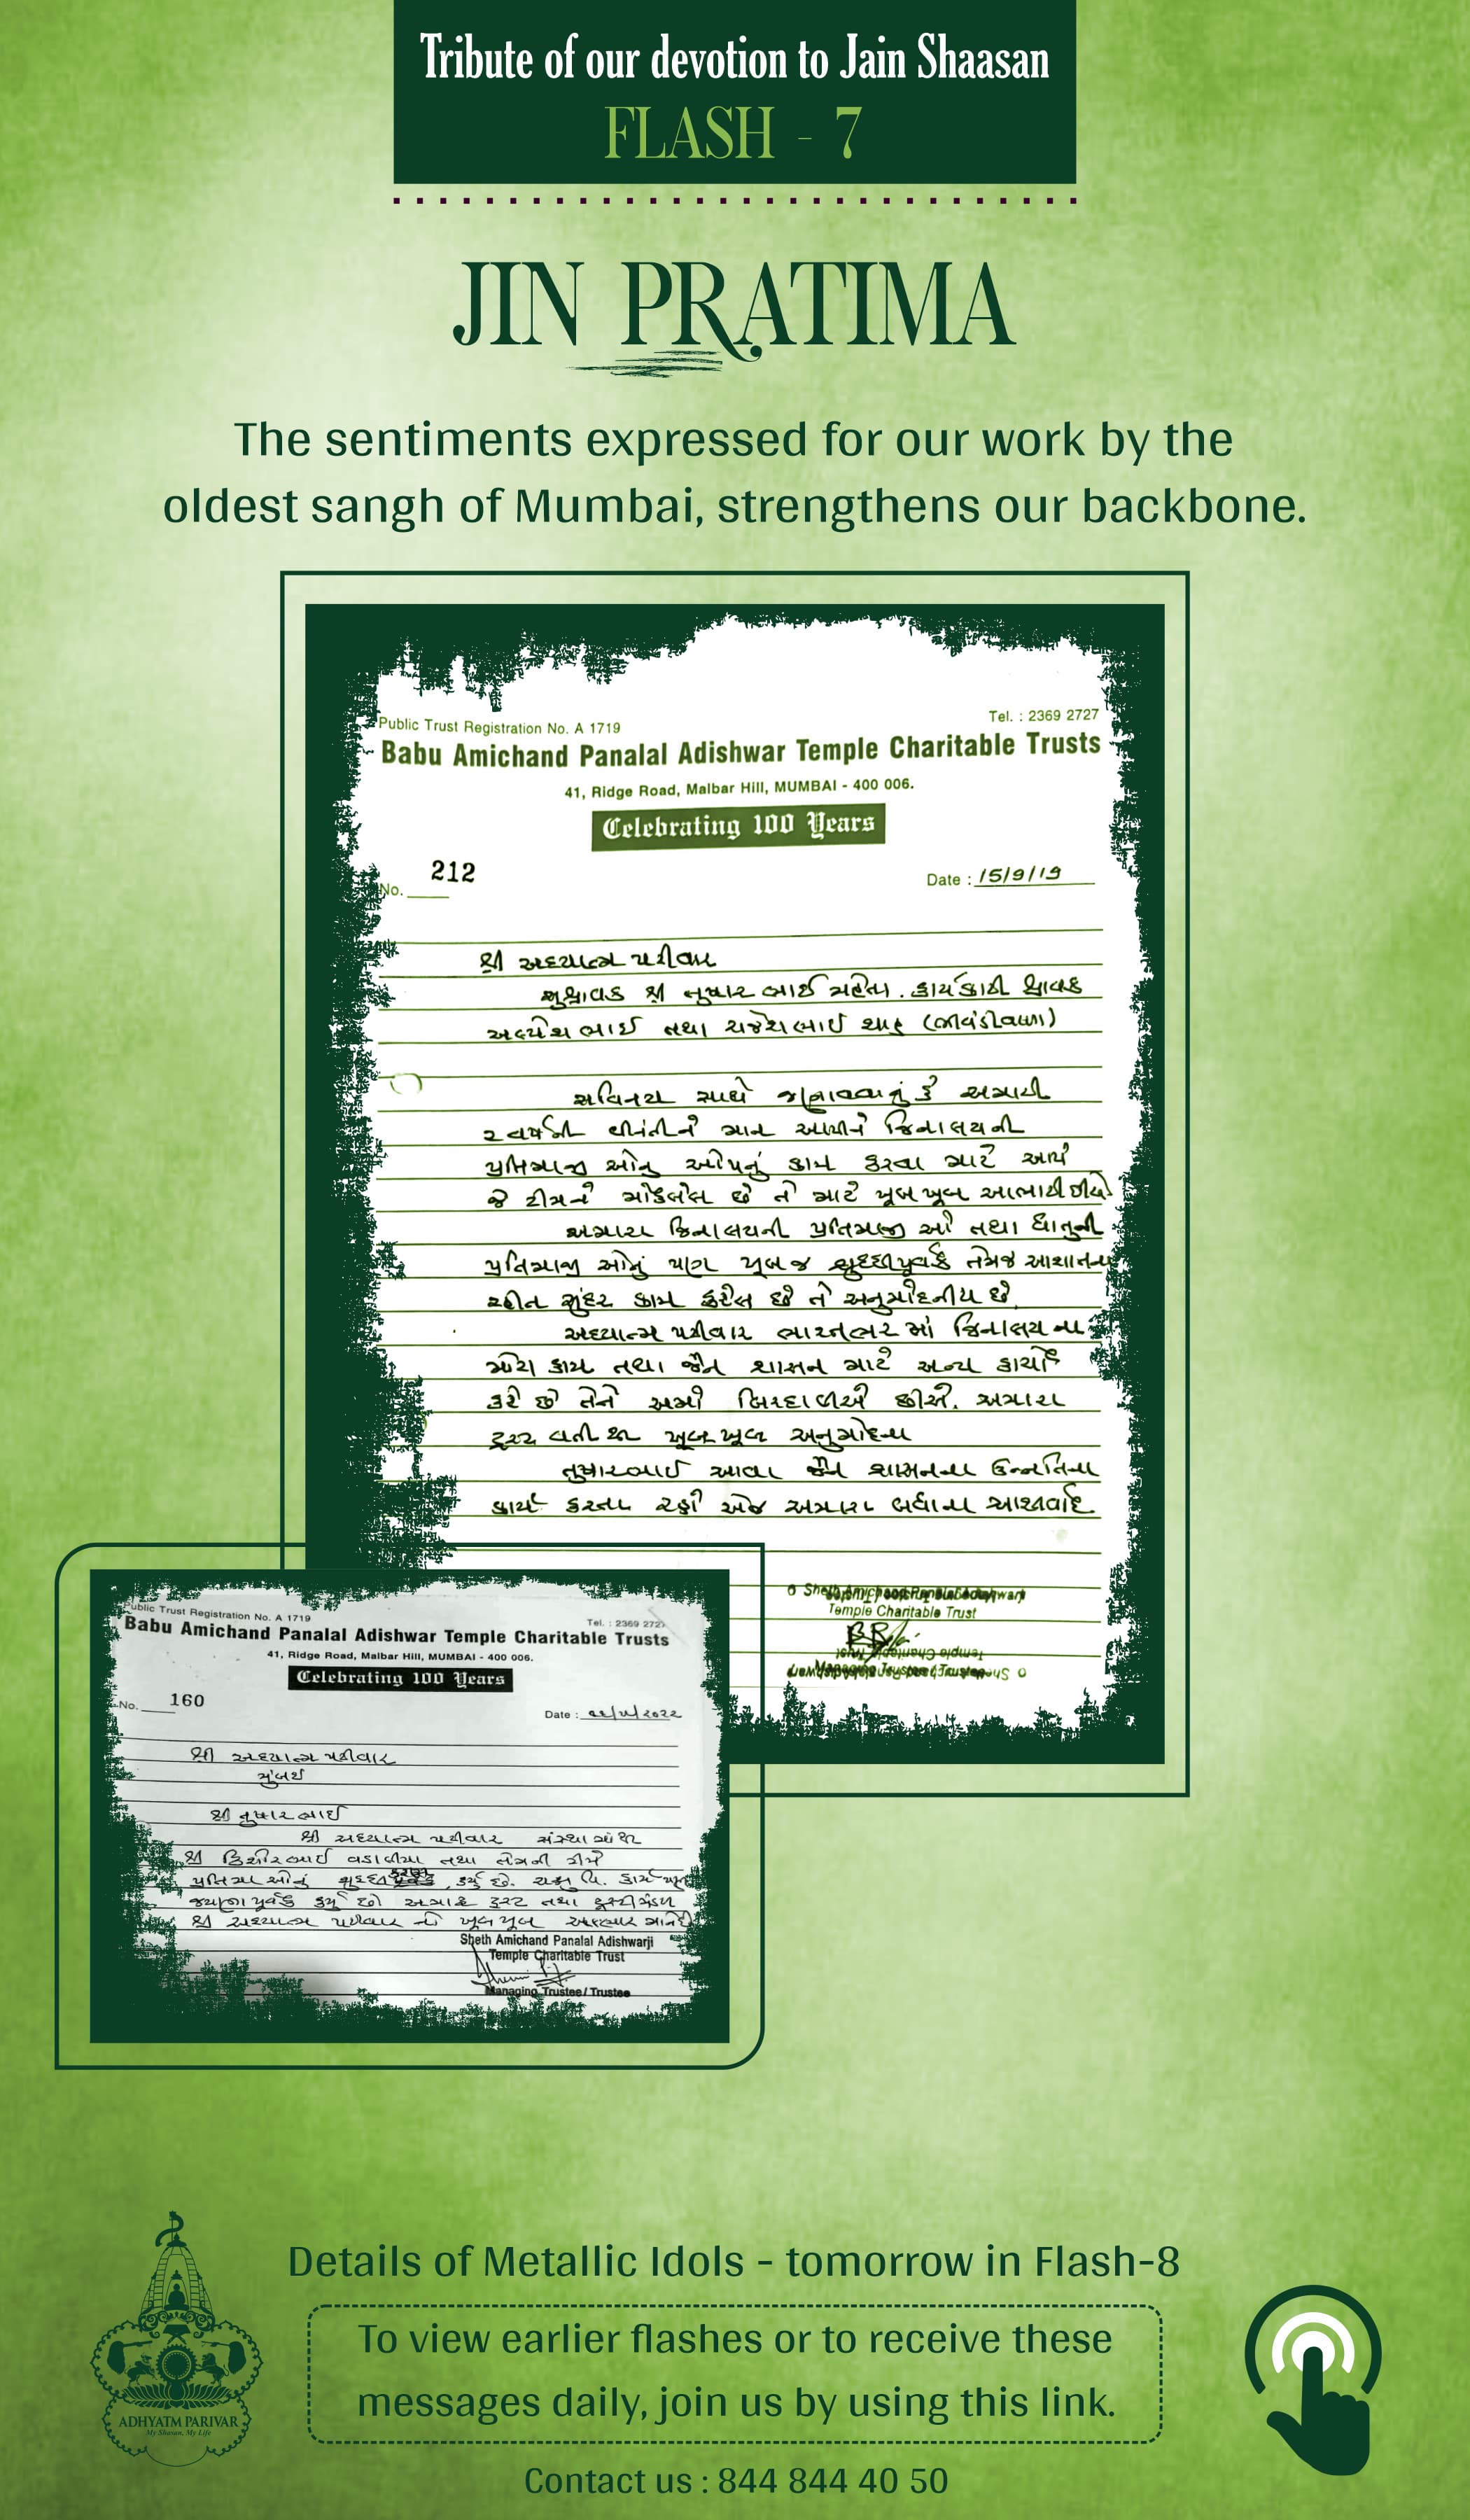 Tribute of our devotion to Jain Shaasan
FLASH - 7
JIN PRATIMA
The sentiments expressed for our work by the
oldest sangh of Mumbai, strengthens our backbone.
Public Trust Registration No. A 1719
Tel. : 2369 2727
Babu Amichand Panalal Adishwar Temple Charitable Trusts
41, Ridge Road, Malbar Hill, MUMBAI - 400 006.
Celebrating 100 Years
No. 212
Date : 15/9/19
શ્રી અધ્યાત્મ પરીવાર
સુશ્રાવક શ્રી તુષારભાઈ મહેતા. કાર્યકારી શ્રાવક
અલ્પેશભાઈ તથા રાજેશભાઈ શાહ (ભીવંડીવાળા)
સવિનય સાથે જણાવવાનું કે અમારી
૨ વર્ષની વીનંતીને માન આપીને જિનાલયની
પ્રતિમાજી ઓનુ ઓપનું કામ કરવા માટે આપે
જે ટીમને મોકલેલ છે તે માટે ખૂબ ખૂબ આભારી છીએ
અમારા જિનાલયની પ્રતિમાજી ઓ તથા ધાતુની
પ્રતિમાજી ઓનું પણ ખૂબ જ શુદ્ધીપૂર્વક તેમજ આશાતના
રહીત સુંદર કામ કરેલ છે તે અનુમોદનીય છે.
અધ્યાત્મ પરીવાર ભારતભર માં જિનાલય ના
મોટા કામ તથા જૈન શાસન માટે અન્ય કાર્યો
કરે છે તેને અમો બિરદાવીએ છીએ. અમારા
ટ્રસ્ટ વતી થી ખૂબ ખૂબ અનુમોદના
તુષારભાઈ આવા જૈન શાસનના ઉન્નતિના
કાર્યો કરતા રહો એજ અમારા બધાના આશીર્વાદ
Temple Charitable Trust
Public Trust Registration No. A 1719
Tel. : 2369 2727
Babu Amichand Panalal Adishwar Temple Charitable Trusts
41, Ridge Road, Malbar Hill, MUMBAI - 400 006.
Celebrating 100 Years
No. 160
Date :
શ્રી અધ્યાત્મ પરીવાર
મુંબઈ
શ્રી તુષારભાઈ
શ્રી અધ્યાત્મ પરીવાર સંસ્થા
શ્રી કિશોરભાઈ વડાલીયા તથા તેમની ટીમે
પ્રતિમા ઓનું કર્યુ છે.
જયણા પૂર્વક કર્યુ છે અમારૂ ટ્રસ્ટ તથા ટ્રસ્ટીમંડળ
શ્રી અધ્યાત્મ પરીવાર નો ખૂબ ખૂબ આભાર માને છે
Sheth Amichand Panalal Adishwarji
Temple Charitable Trust
Managing Trustee / Trustee
Details of Metallic Idols - tomorrow in Flash-8
To view earlier flashes or to receive these
messages daily, join us by using this link.
ADHYATM PARIVAR
My Shasan, My Life
Contact us : 844 844 40 50